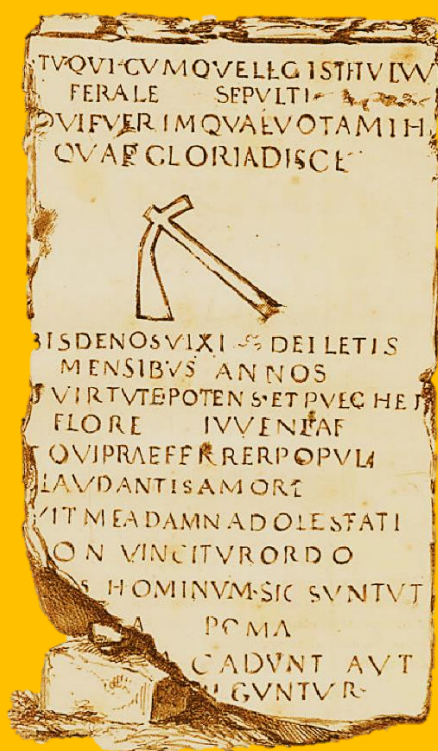 TVQVI·CVMQVELEGISTITVLVV
FERALE SEPVLTI
QVIFVERIMQVAEVOTAMIH
QVAE GLORIADISCE
BISDENOSVIXI DEILETIS
MENSIBVS ANNOS
TVIRTVTEPOTENS·ETPVLCHER
FLORE IVVENTAE
TQVIPRAEFERRERPOPVLI
LAVDANTISAMORE
VITMEADAMNADOLESFATI
ON VINCITVRORDO
S HOMINVM·SIC SVNTVT
A POMA
CADVNT AVT
GVNTVR·